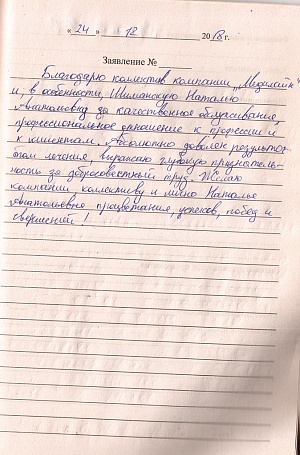 « 24 » 12 2018 г.
Заявление №
Благодарю коллектив компании „Медилайн"
и, в особенности, Шиманскую Наталью
Анатольевну за качественное обслуживание,
профессиональное отношение к профессии и
к клиентам. Абсолютно доволен результа-
том лечения, выражаю глубокую признатель-
ность за добросовестный труд. Желаю
компании, коллективу и лично Наталье
Анатольевне процветания, успехов, побед и
свершений!